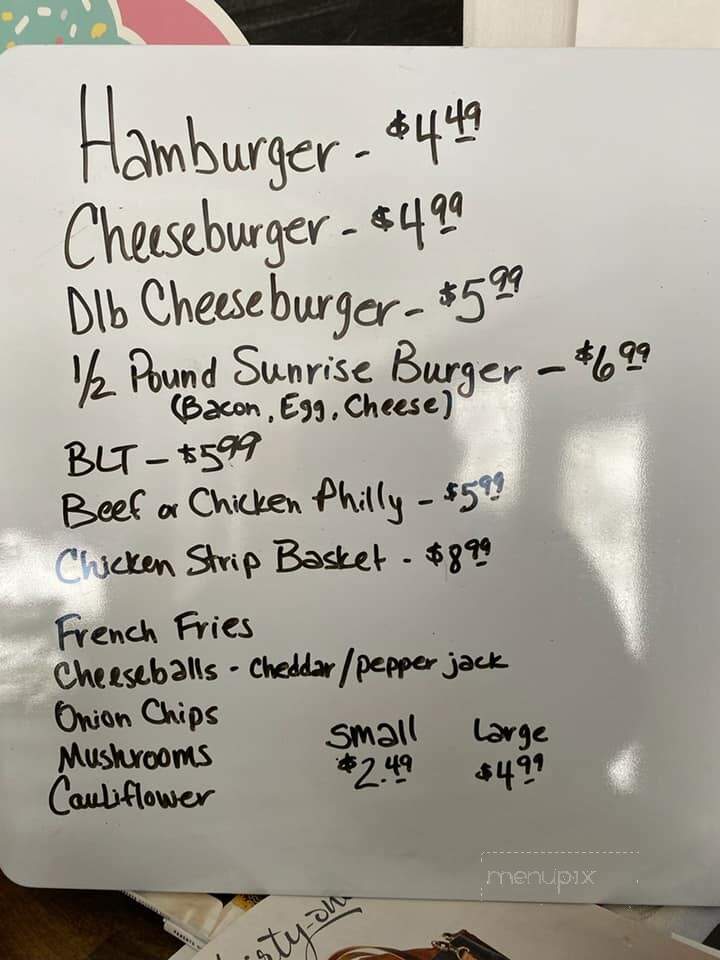 Hamburger - $4.49
Cheeseburger - $4.99
Dlb Cheeseburger - $5.99
1/2 Pound Sunrise Burger - $6.99
(Bacon, Egg, Cheese)
BLT - $5.99
Beef or Chicken Philly - $5.99
Chicken Strip Basket - $8.99
French Fries
Cheeseballs - Cheddar/pepper jack
Onion Chips
Mushrooms
Cauliflower
Small Large
$2.49 $4.99
menupix